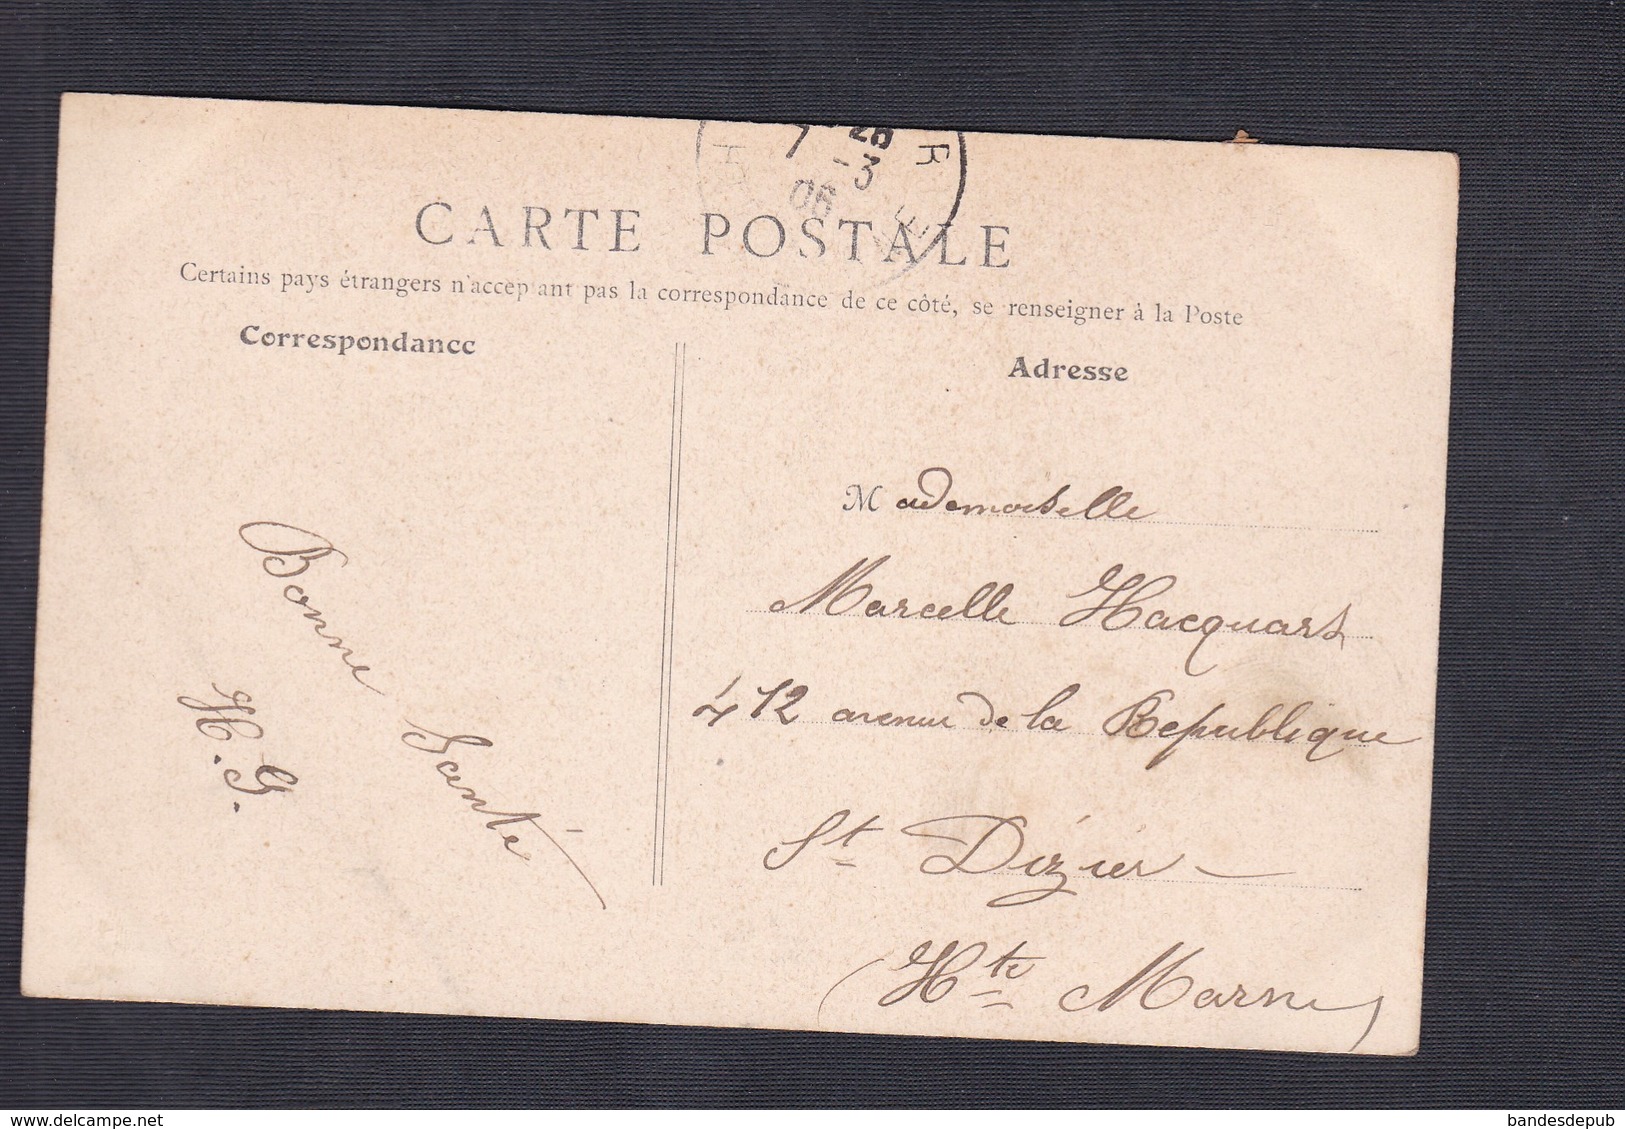 7 26
-3
06
CARTE POSTALE
Certains pays étrangers n'accep ant pas la correspondance de ce côté, se renseigner à la Poste
Correspondance
Adresse
Bonne Santé
H. G.
Mademoiselle
Marcelle Hacquart
412 avenue de la Republique
St Dizier
(Hte Marne)
www.delcampe.net
bandesdepub